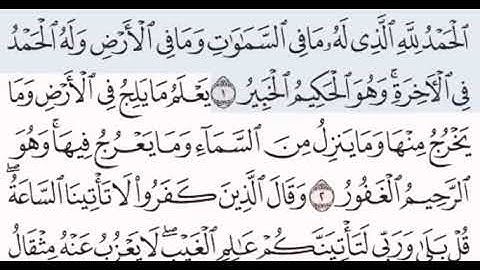 ٱلْحَمْدُ لِلَّهِ ٱلَّذِى لَهُۥ مَا فِى ٱلسَّمَـٰوَٰتِ وَمَا فِى ٱلْأَرْضِ وَلَهُ ٱلْحَمْدُ
فِى ٱلْـَٔاخِرَةِ ۚ وَهُوَ ٱلْحَكِيمُ ٱلْخَبِيرُ ١ يَعْلَمُ مَا يَلِجُ فِى ٱلْأَرْضِ وَمَا
يَخْرُجُ مِنْهَا وَمَا يَنزِلُ مِنَ ٱلسَّمَآءِ وَمَا يَعْرُجُ فِيهَا ۚ وَهُوَ
ٱلرَّحِيمُ ٱلْغَفُورُ ٢ وَقَالَ ٱلَّذِينَ كَفَرُوا۟ لَا تَأْتِينَا ٱلسَّاعَةُ ۖ
قُلْ بَلَىٰ وَرَبِّى لَتَأْتِيَنَّكُمْ عَـٰلِمِ ٱلْغَيْبِ ۖ لَا يَعْزُبُ عَنْهُ مِثْقَالُ